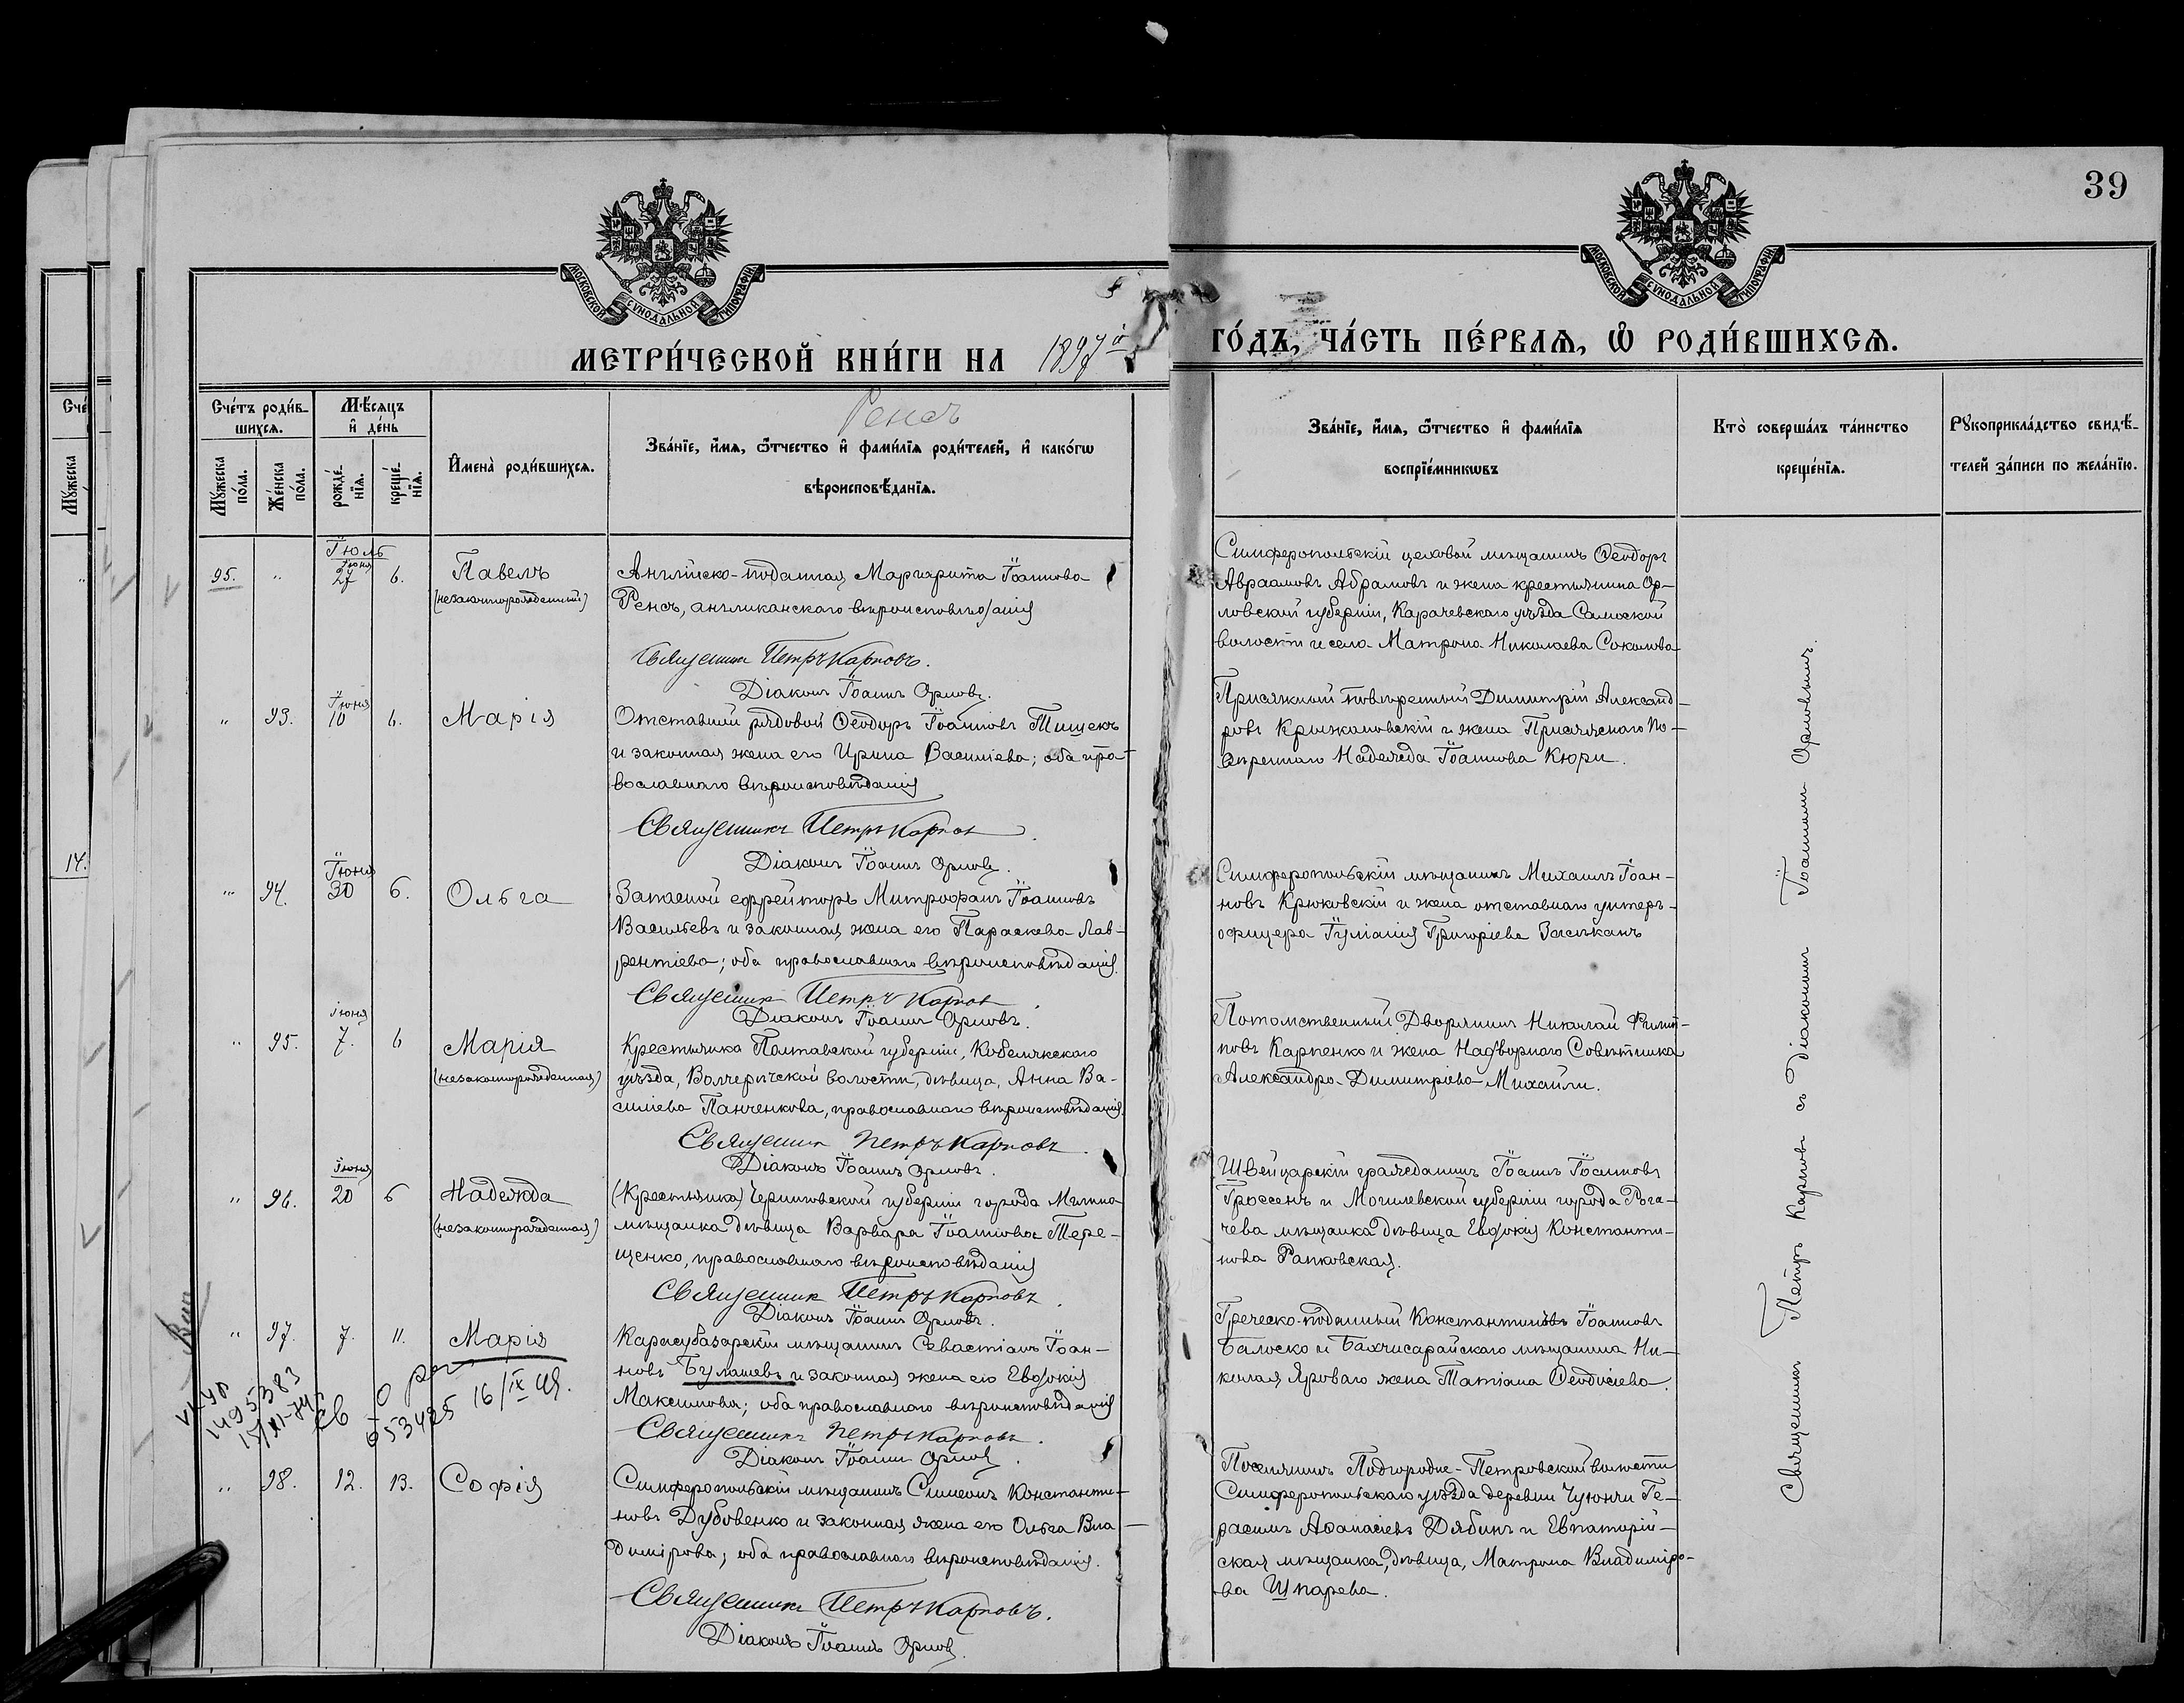 39
МОСКОВСКОЙ СѴНОДАЛЬНОЙ ТИПОГРАФІИ
МОСКОВСКОЙ СѴНОДАЛЬНОЙ ТИПОГРАФІИ
МЕТРИ́ЧЕСКОЙ КНИ́ГИ НА 1897й ГО́ДЪ, ЧА́СТЬ ПЕ́РВАѦ, Ѽ РОДИ́ВШИХСѦ.
Счéтъ роди́в-
шихсѧ.
Мꙋ́жеска пóла.
Жéнска пóла.
Мѣ́сѧцъ
и҆ дéнь
рождé-
нїѧ.
крещé-
нїѧ.
И҆менà роди́вшихсѧ.
Ренсъ
Звáнїе, и҆́мѧ, ѻ҆́тчество и҆ фами́лїѧ роди́телей, и҆ какóгѡ
вѣроисповѣ́данїѧ.
Звáнїе, и҆́мѧ, ѻ҆́тчество и҆ фами́лїѧ
воспрїéмникѡвъ
Ктò совершáлъ тáинство
крещéнїѧ.
Рꙋкоприклáдство свидѣ́-
телей зáписи по желáнїю.
Іюль
95. " Іюня 27 6. Павелъ
(незаконнорожденный)
Англійско-поданная Маргарита Іоаннова
Ренсъ, англиканскаго вѣроисповѣданія
Священникъ Петръ Карповъ.
Діаконъ Іоаннъ Орловъ.
Симферопольскій цеховой мѣщанинъ Ѳеодоръ
Авраамовъ Абрамовъ и жена крестьянина Ор-
ловской губерніи, Карачевскаго уѣзда Самоской
волости и села Матрона Николаева Соколова
" 93. Іюня 10 6. Марія
Отставной рядовой Ѳеодоръ Іоанновъ Тищекъ
и законная жена его Ирина Василіева; оба пра-
вославнаго вѣроисповѣданія
Священникъ Петръ Карповъ.
Діаконъ Іоаннъ Орловъ.
Присяжный повѣренный Димитрій Александ-
ровъ Крыжановскій и жена Присяжнаго По-
вѣреннаго Надежда Іоаннова Кюри.
" 94. Іюня 30 6. Ольга
Запасной ефрейторъ Митрофанъ Іоанновъ
Васильевъ и законная жена его Параскева Лав-
рентіева; оба православнаго вѣроисповѣданія.
Священникъ Петръ Карповъ.
Діаконъ Іоаннъ Орловъ.
Симферопольскій мѣщанинъ Михаилъ Іоан-
новъ Крюковскій и жена отставнаго унтеръ-
офицера Іуліанія Григоріева Засѣканъ
" 95. іюня 7. 6 Марія
(незаконнорожденная)
Крестьянка Полтавской губерніи, Кобелякскаго
уѣзда, волости, дѣвица, Анна Ва-
силіева Панченкова, православнаго вѣроисповѣданія
Священникъ Петръ Карповъ.
Діаконъ Іоаннъ Орловъ.
Потомственный Дворянинъ Николай Филип-
повъ Карпенко и жена Надворнаго Совѣтника
Александра Димитріева Михайли.
" 96. Іюня 20 6 Надежда
(незаконнорожденная)
(Крестьянка) Черниговской губерніи города Мглина
мѣщанка дѣвица Варвара Іоаннова Тере-
щенко, православнаго вѣроисповѣданія
Священникъ Петръ Карповъ.
Діаконъ Іоаннъ Орловъ.
Швейцарскій гражданинъ Іоаннъ Іоанновъ
Гроссенъ и Могилевской губерніи города Рога-
чева мѣщанка дѣвица Евдокія Константи-
нова Рапковская.
" 97. 7. 11. Марія
Карасубазарскій мѣщанинъ Севастіанъ Іоан-
новъ Булашевъ и законная жена его Евдокія
Максимова; оба православнаго вѣроисповѣданія
Священникъ Петръ Карповъ.
Діаконъ Іоаннъ Орловъ.
Греческо-поданный Константинъ Іоанновъ
Балоско и Бахчисарайскаго мѣщанина Ни-
колая Яроваго жена Татіана Ѳеодосіева.
1495383
св о рог
653425 16/IX 49.
" 98. 12. 13. Софія
Симферопольскій мѣщанинъ Симеонъ Константи-
новъ Дубовенко и законная жена его Ольга Вла-
димірова; оба православнаго вѣроисповѣданія.
Священникъ Петръ Карповъ.
Діаконъ Іоаннъ Орловъ.
Поселянинъ Подгородне-Петровской волости
Симферопольскаго уѣзда деревни Чуюнчи Ге-
расимъ Аѳанасіевъ Дябинъ и Евпаторій-
ская мѣщанка, дѣвица, Матрона Владиміро-
ва Шпарева.
Священникъ Петръ Карповъ съ Діакономъ Іоанномъ Орловымъ.
Сче
Мꙋжеска
14.